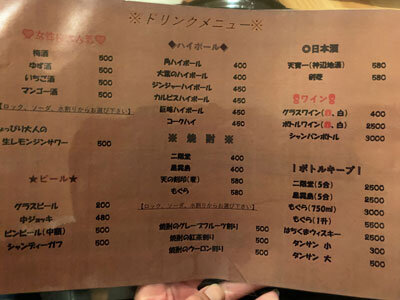 ※ドリンクメニュー※
梅酒 500
ゆず酒 500
いちご酒 500
マンゴー酒 500
【ロック、ソーダ、水割りからお選び下さい】
ちょっぴり大人の
生レモンジンサワー 500
★ビール★
グラスビール 200
中ジョッキ 480
ビンビール(中瓶) 500
シャンディーガフ 500
◆ハイボール◆
角ハイボール 400
大震のハイボール 400
ジンジャーハイボール 450
カルピスハイボール 450
巨峰ハイボール 450
コークハイ 450
※焼酎※
二階堂 400
黒霧島 400
天の刻印(麦) 580
もぐら 580
【ロック、ソーダ、水割りからお選び下さい】
焼酎のグレープフルーツ割り 500
焼酎の紅茶割り 500
焼酎のウーロン割り 500
◎日本酒
天寶一(神辺地酒) 580
580
ワイン
グラスワイン(赤、白) 400
ボトルワイン(赤、白) 2500
シャンパンボトル 3000
!ボトルキープ!
二階堂(5合) 2500
黒霧島(5合) 2500
もぐら(750ml) 3000
もぐら(1升)
はちくまウィスキー 2500
タンサン 小 300
タンサン 大 500